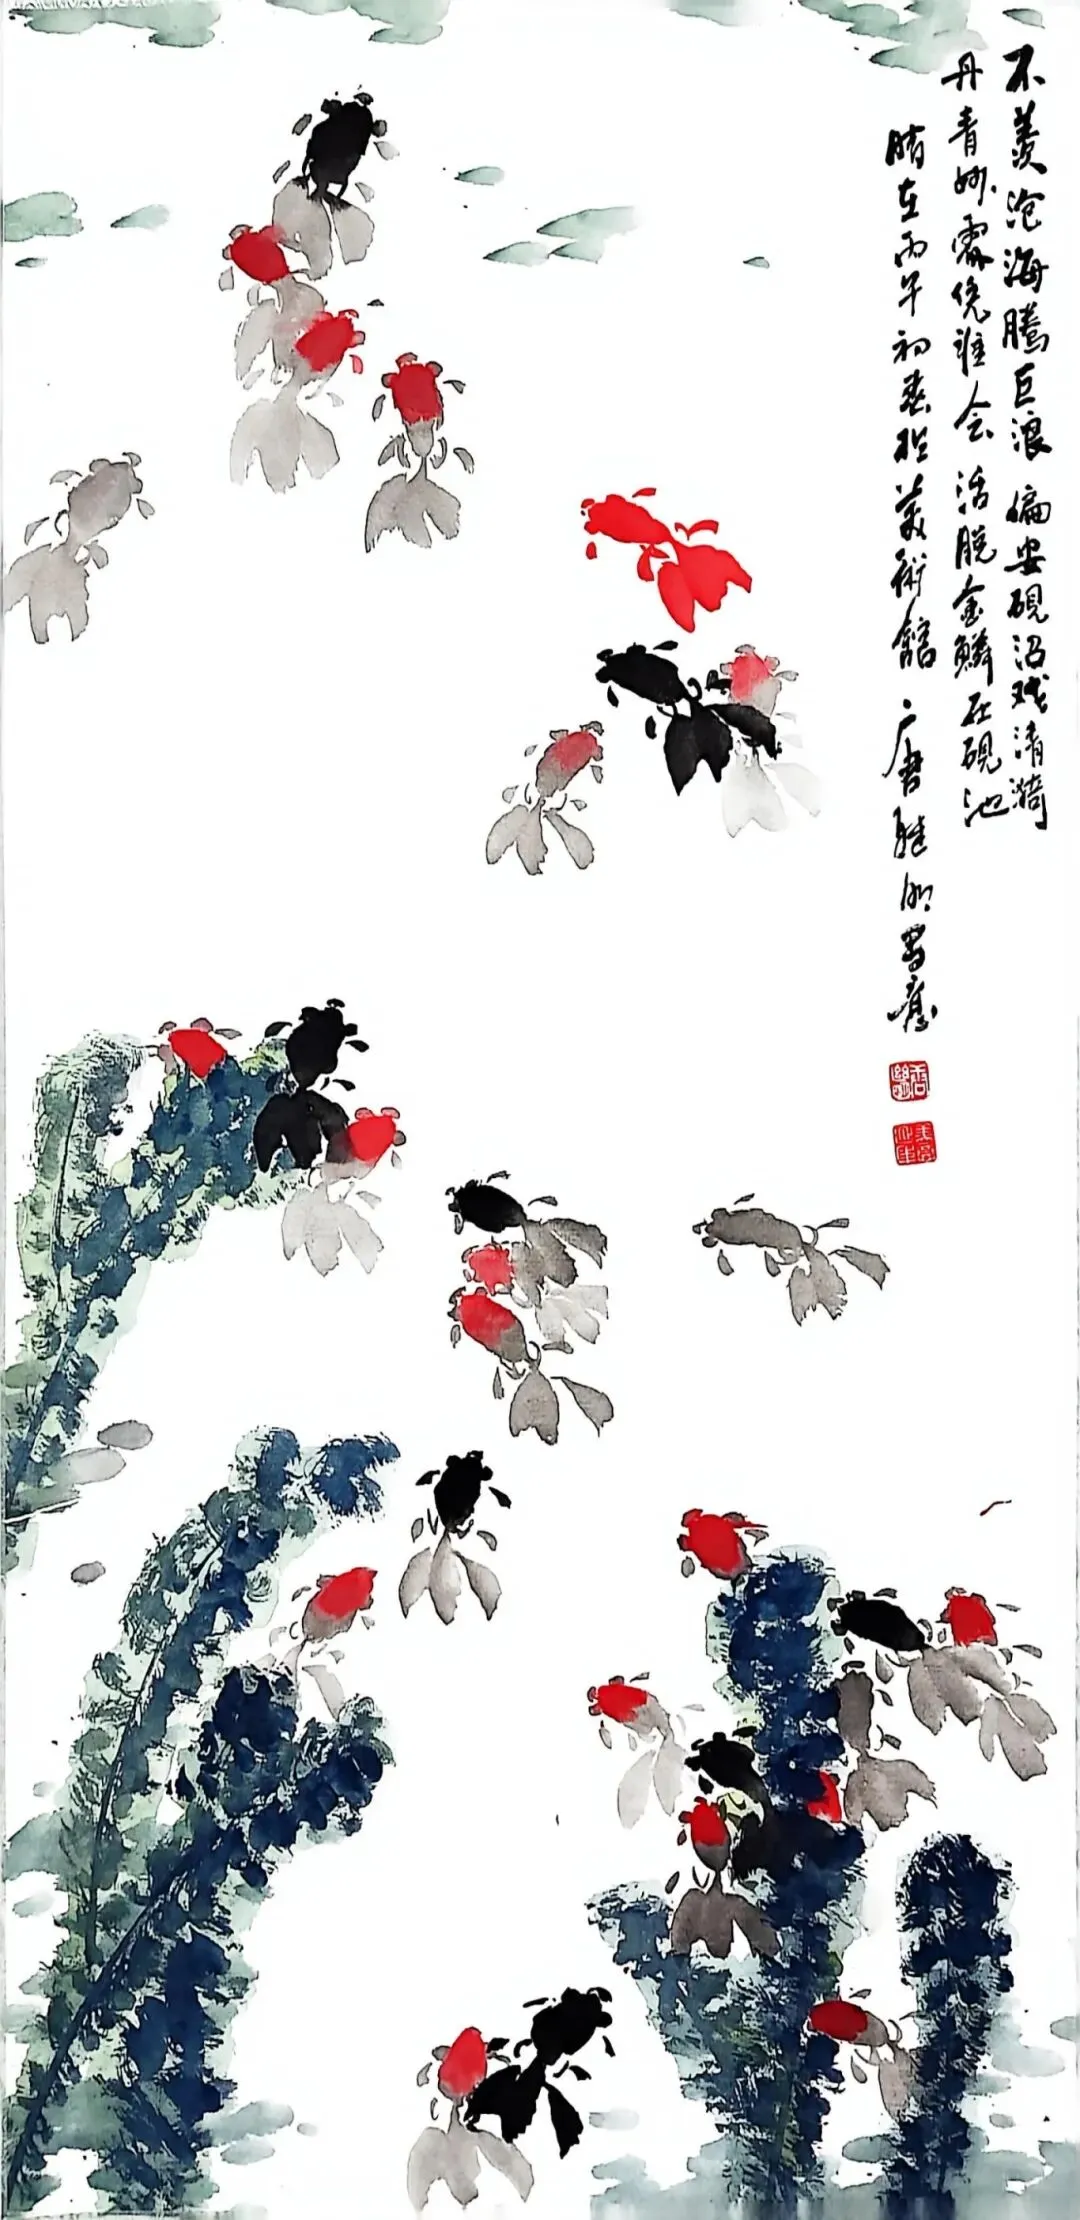 不羡沧海腾巨浪 偏安砚沼戏清漪
丹青妙需凭谁会 活脱金鳞在砚池
时在丙午初春于美术馆 广 胜 写意